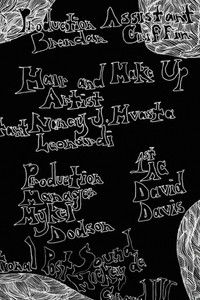 Production Assistant
Brendan Griffin
Hair and Make Up
Artist
tant Nancy J. Mvrsta
Leonardi
Production
Manager
Mykel
Dodson
1st
AC
David
Davis
tional Post Sound
de